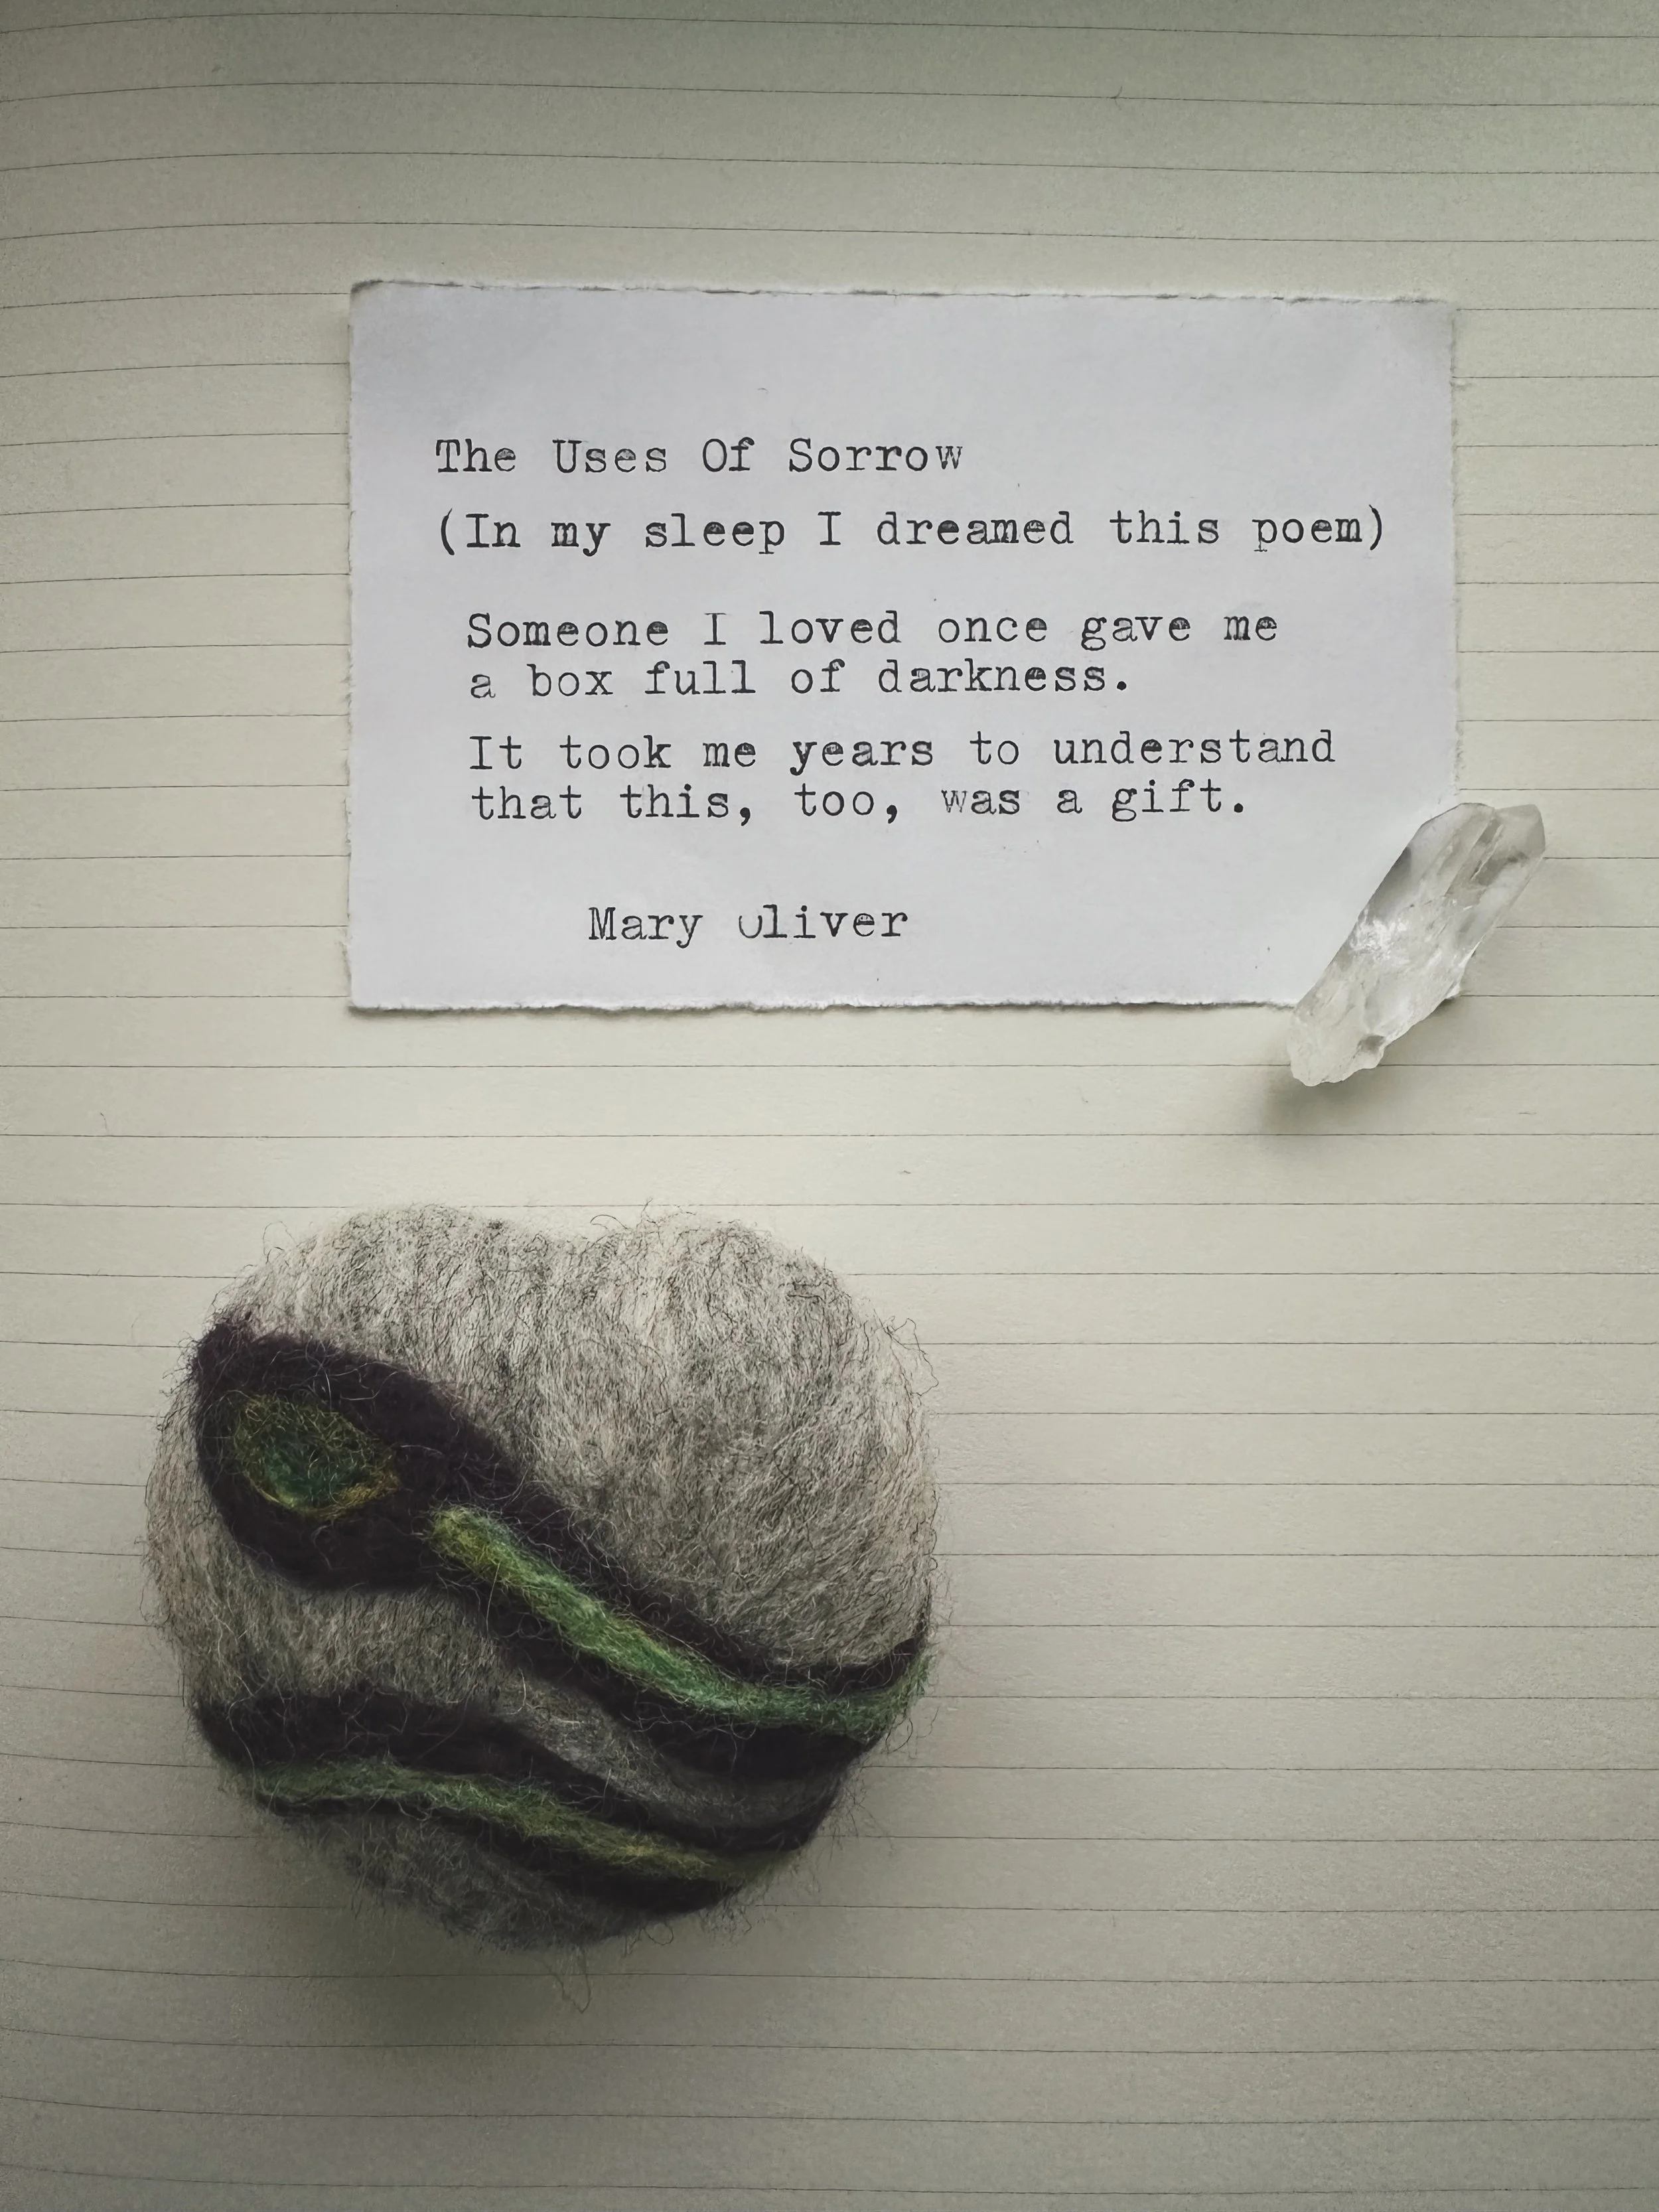 The Uses Of Sorrow
(In my sleep I dreamed this poem)
Someone I loved once gave me
a box full of darkness.
It took me years to understand
that this, too, was a gift.
Mary Oliver